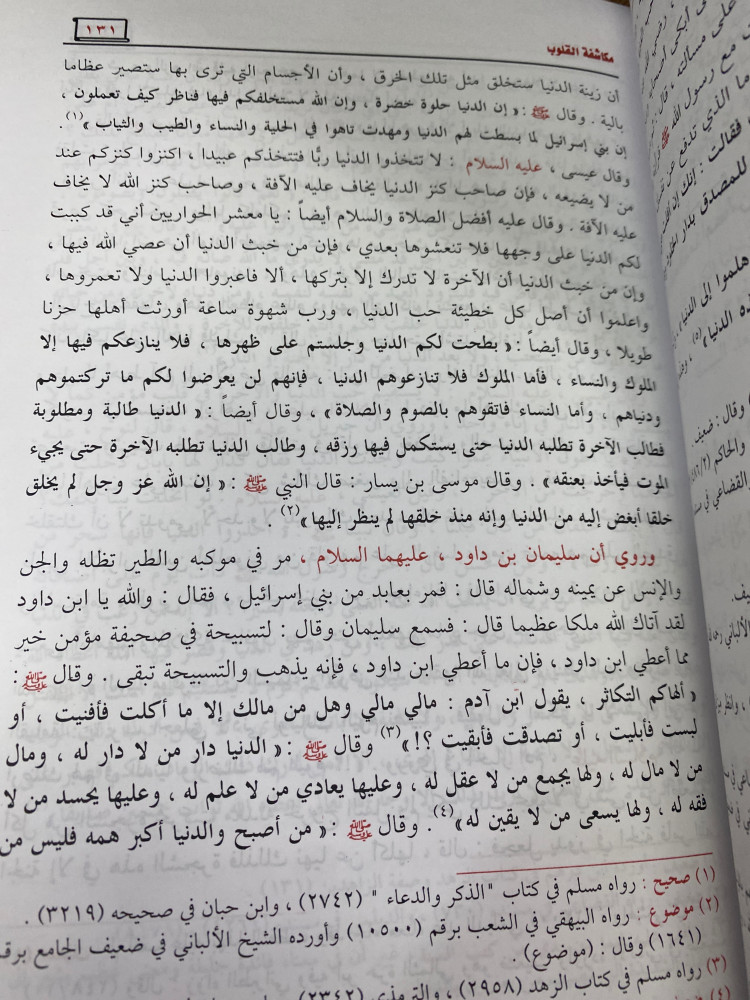 مكاشفة القلوب
١٣١
أن زينة الدنيا ستخلق مثل تلك الخرق ، وأن الأجسام التي ترى بها ستصير عظاما
بالية . وقال ﷺ : « إن الدنيا حلوة خضرة ، وإن الله مستخلفكم فيها فناظر كيف تعملون ،
إن بني إسرائيل لما بسطت لهم الدنيا ومهدت تاهوا في الحلية والنساء والطيب والثياب »(١).
وقال عيسى ، عليه السلام : لا تتخذوا الدنيا ربًّا فتتخذكم عبيدا ، اكنزوا كنزكم عند
من لا يضيعه ، فإن صاحب كنز الدنيا يخاف عليه الآفة ، وصاحب كنز الله لا يخاف
عليه الآفة . وقال عليه أفضل الصلاة والسلام أيضاً : يا معشر الحواريين أني قد كببت
لكم الدنيا على وجهها فلا تنعشوها بعدي ، فإن من خبث الدنيا أن عصي الله فيها ،
وإن من خبث الدنيا أن الآخرة لا تدرك إلا بتركها ، ألا فاعبروا الدنيا ولا تعمروها ،
واعلموا أن أصل كل خطيئة حب الدنيا ، ورب شهوة ساعة أورثت أهلها حزنا
طويلا ، وقال أيضاً : « بطحت لكم الدنيا وجلستم على ظهرها ، فلا ينازعكم فيها إلا
الملوك والنساء ، فأما الملوك فلا تنازعوهم الدنيا ، فإنهم لن يعرضوا لكم ما تركتموهم
ودنياهم ، وأما النساء فاتقوهم بالصوم والصلاة » ، وقال أيضاً : « الدنيا طالبة ومطلوبة
فطالب الآخرة تطلبه الدنيا حتى يستكمل فيها رزقه ، وطالب الدنيا تطلبه الآخرة حتى يجيء
الموت فيأخذ بعنقه » . وقال موسى بن يسار : قال النبي ﷺ : « إن الله عز وجل لم يخلق
خلقا أبغض إليه من الدنيا وإنه منذ خلقها لم ينظر إليها »(٢) .
وروي أن سليمان بن داود ، عليهما السلام ، مر في موكبه والطير تظله والجن
والإنس عن يمينه وشماله قال : فمر بعابد من بني إسرائيل ، فقال : والله يا ابن داود
لقد آتاك الله ملكا عظيما قال : فسمع سليمان وقال : لتسبيحة في صحيفة مؤمن خير
مما أعطي ابن داود ، فإن ما أعطي ابن داود ، فإنه يذهب والتسبيحة تبقى . وقال ﷺ :
« ألهاكم التكاثر ، يقول ابن آدم : مالي مالي وهل من مالك إلا ما أكلت فأفنيت ، أو
لبست فأبليت ، أو تصدقت فأبقيت ؟! »(٣) وقال ﷺ : « الدنيا دار من لا دار له ، ومال
من لا مال له ، ولها يجمع من لا عقل له ، وعليها يعادي من لا علم له ، وعليها يحسد من لا
فقه له ، ولها يسعى من لا يقين له »(٤). وقال ﷺ : « من أصبح والدنيا أكبر همه فليس من
(١) صحيح : رواه مسلم في كتاب "الذكر والدعاء " (٢٧٤٢) ، وابن حبان في صحيحه (٣٢١٩) .
(٢) موضوع : رواه البيهقي في الشعب برقم (١٠٥٠٠) وأورده الشيخ الألباني في ضعيف الجامع برقم
(١٦٤١) وقال : (موضوع) .
(٣) رواه مسلم في كتاب الزهد (٢٩٥٨) ، والترمذي (٢٣٤٢)